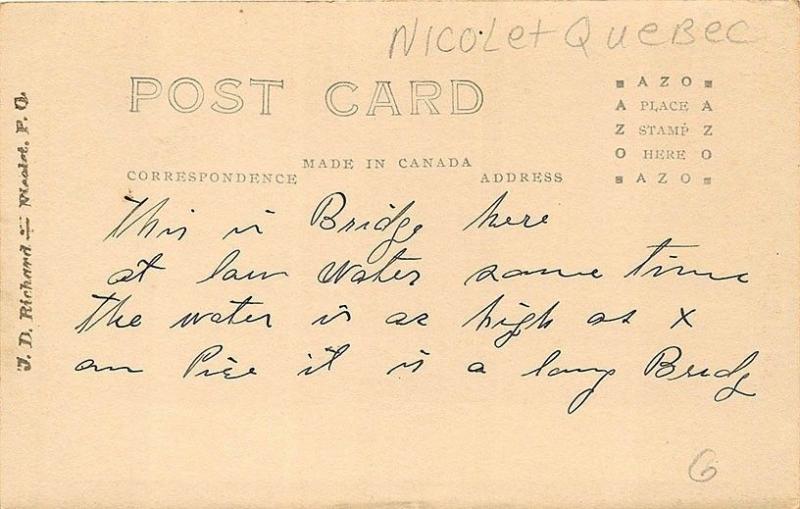 Nicolet Quebec
POST CARD
AZO
A PLACE A
Z STAMP Z
O HERE O
AZO
MADE IN CANADA
CORRESPONDENCE
ADDRESS
J. D. Richard — Nicolet, P. Q.
This is Bridge here
at law water some time
the water is as high as x
on Pier it is a long Bridg
6